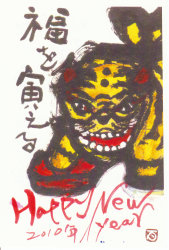 福を寅える
Happy New
2010年 year